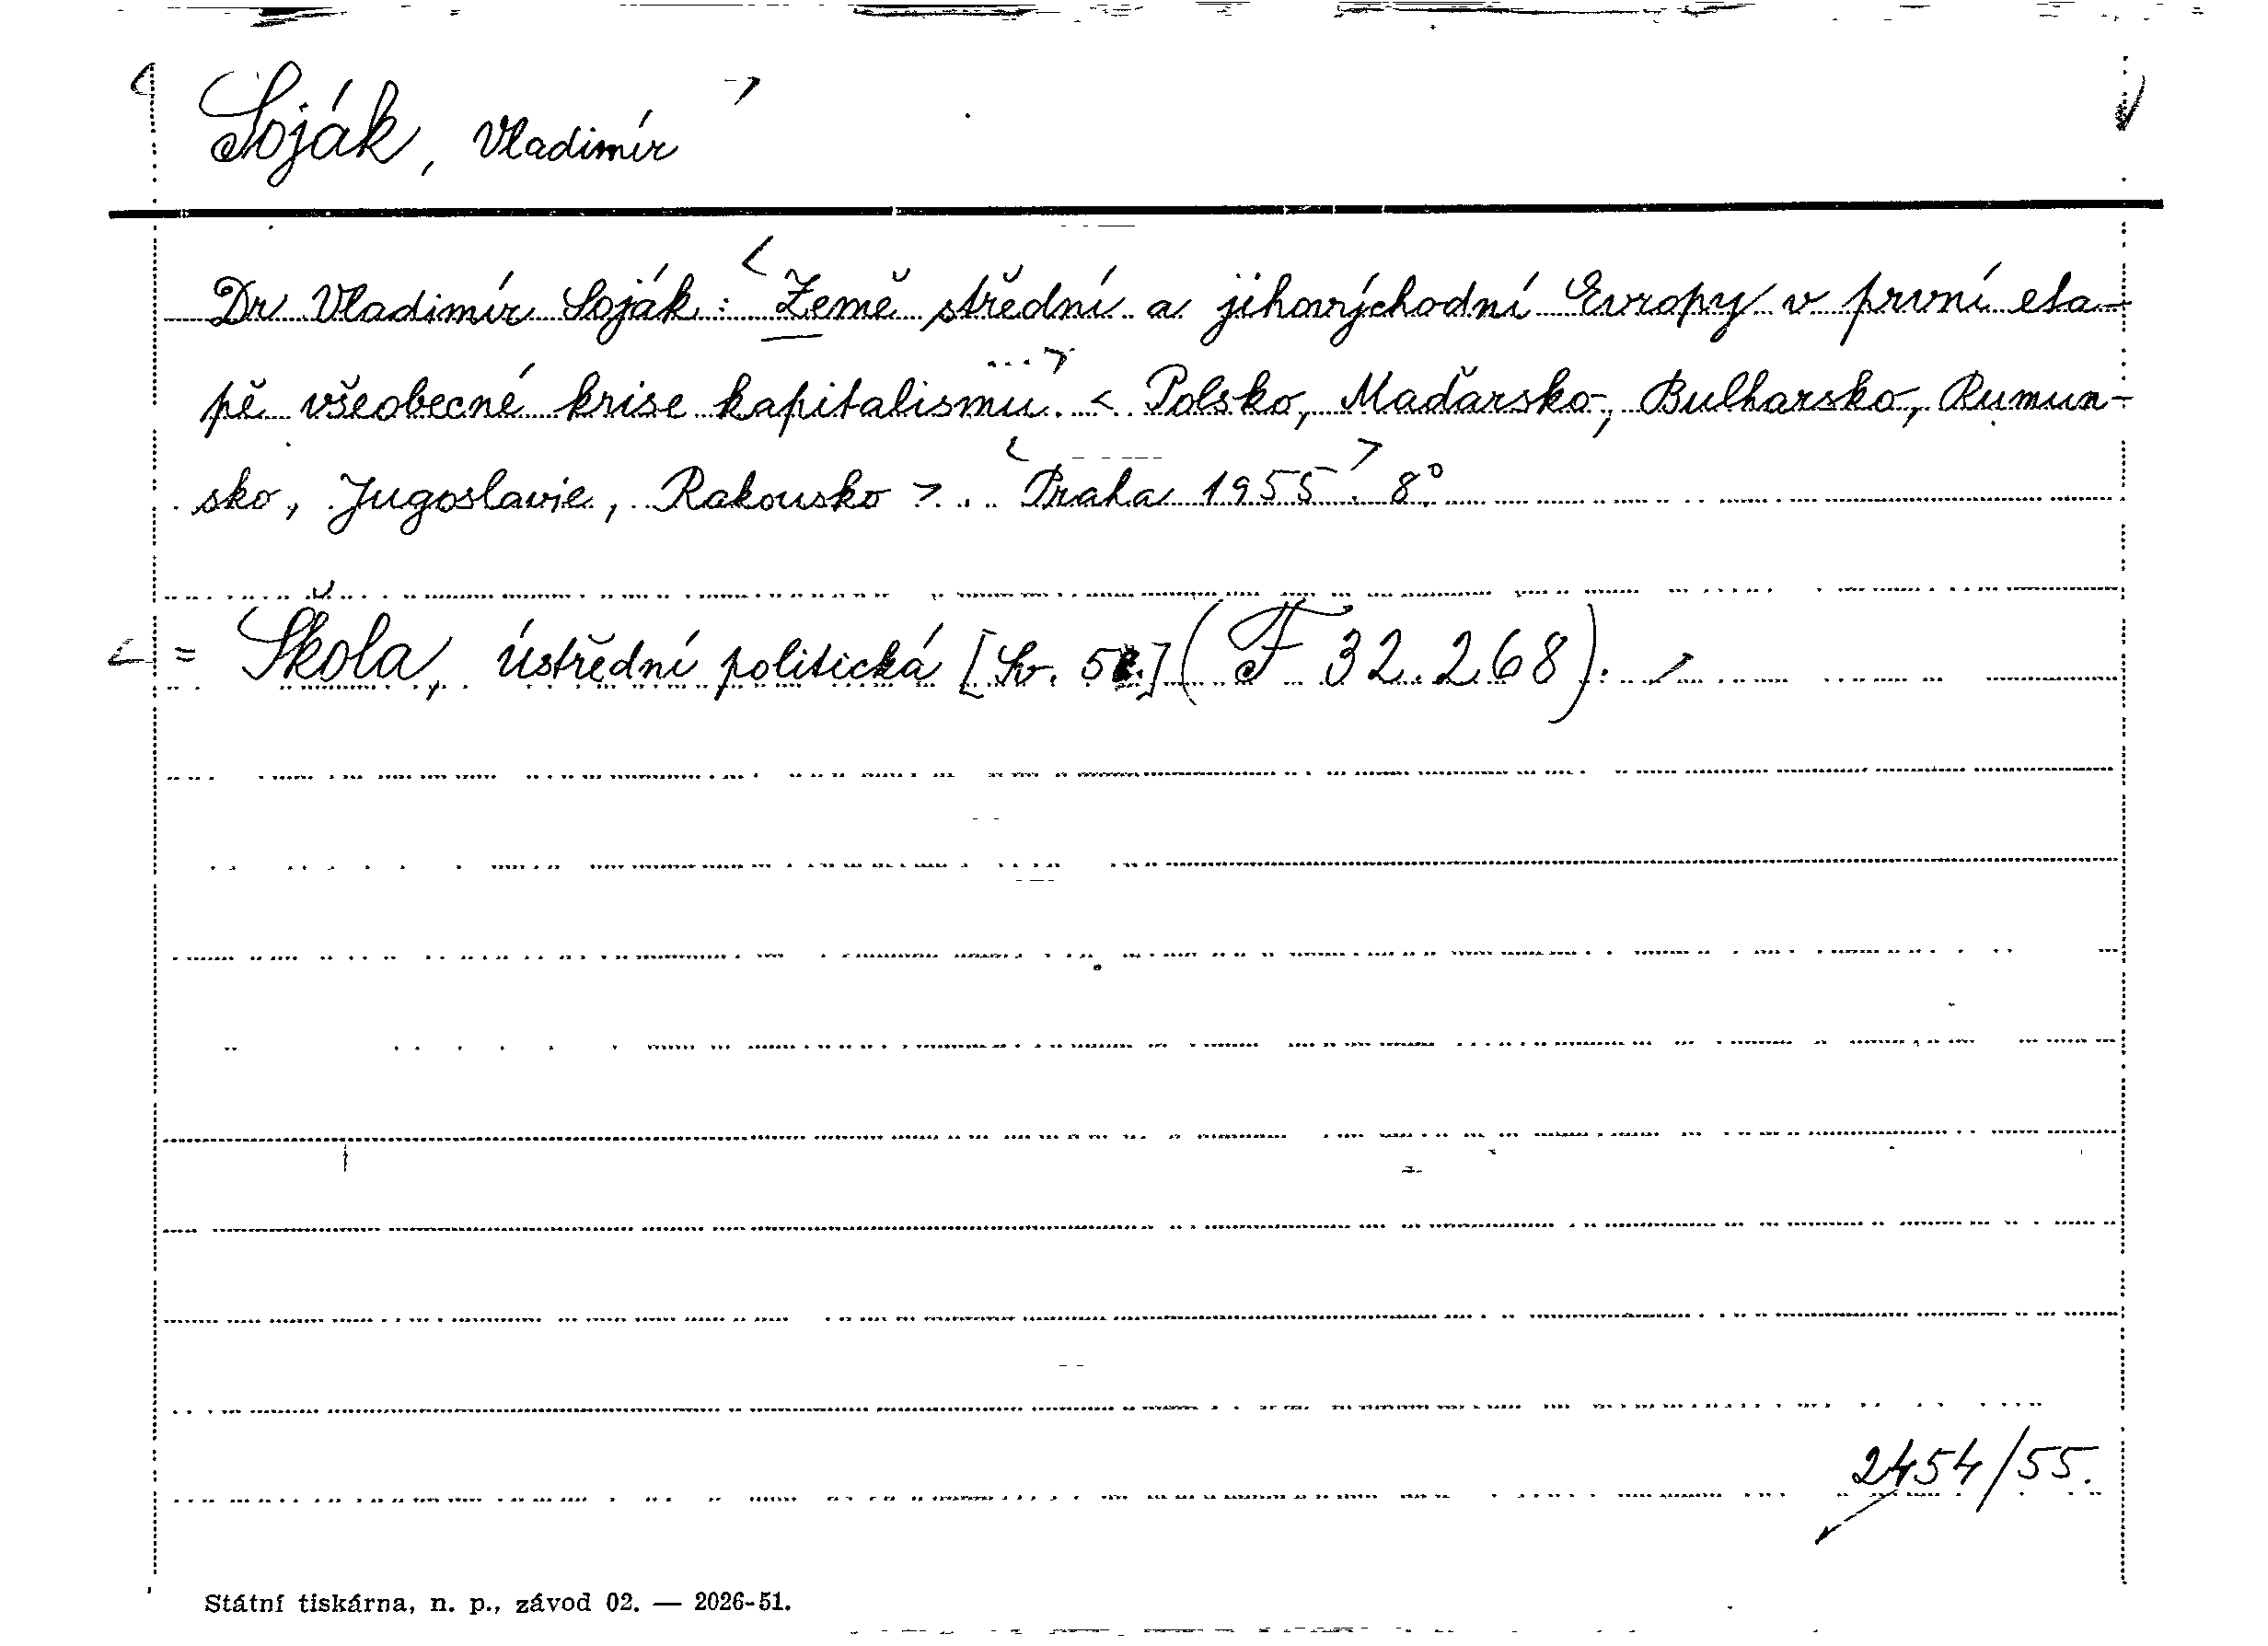 < Soják, Vladimír >
Dr Vladimír Soják: < Země střední a jihovýchodní Evropy v první eta-
pě všeobecné krise kapitalismu. ...> < Polsko, Maďarsko, Bulharsko, Rumun-
sko, Jugoslavie, Rakousko >. < Praha 1955 >. 8°
< = Škola, ústřední politická [Sv. 5.] (F 32.268). >
2454/55.
Státní tiskárna, n. p., závod 02. — 2026-51.